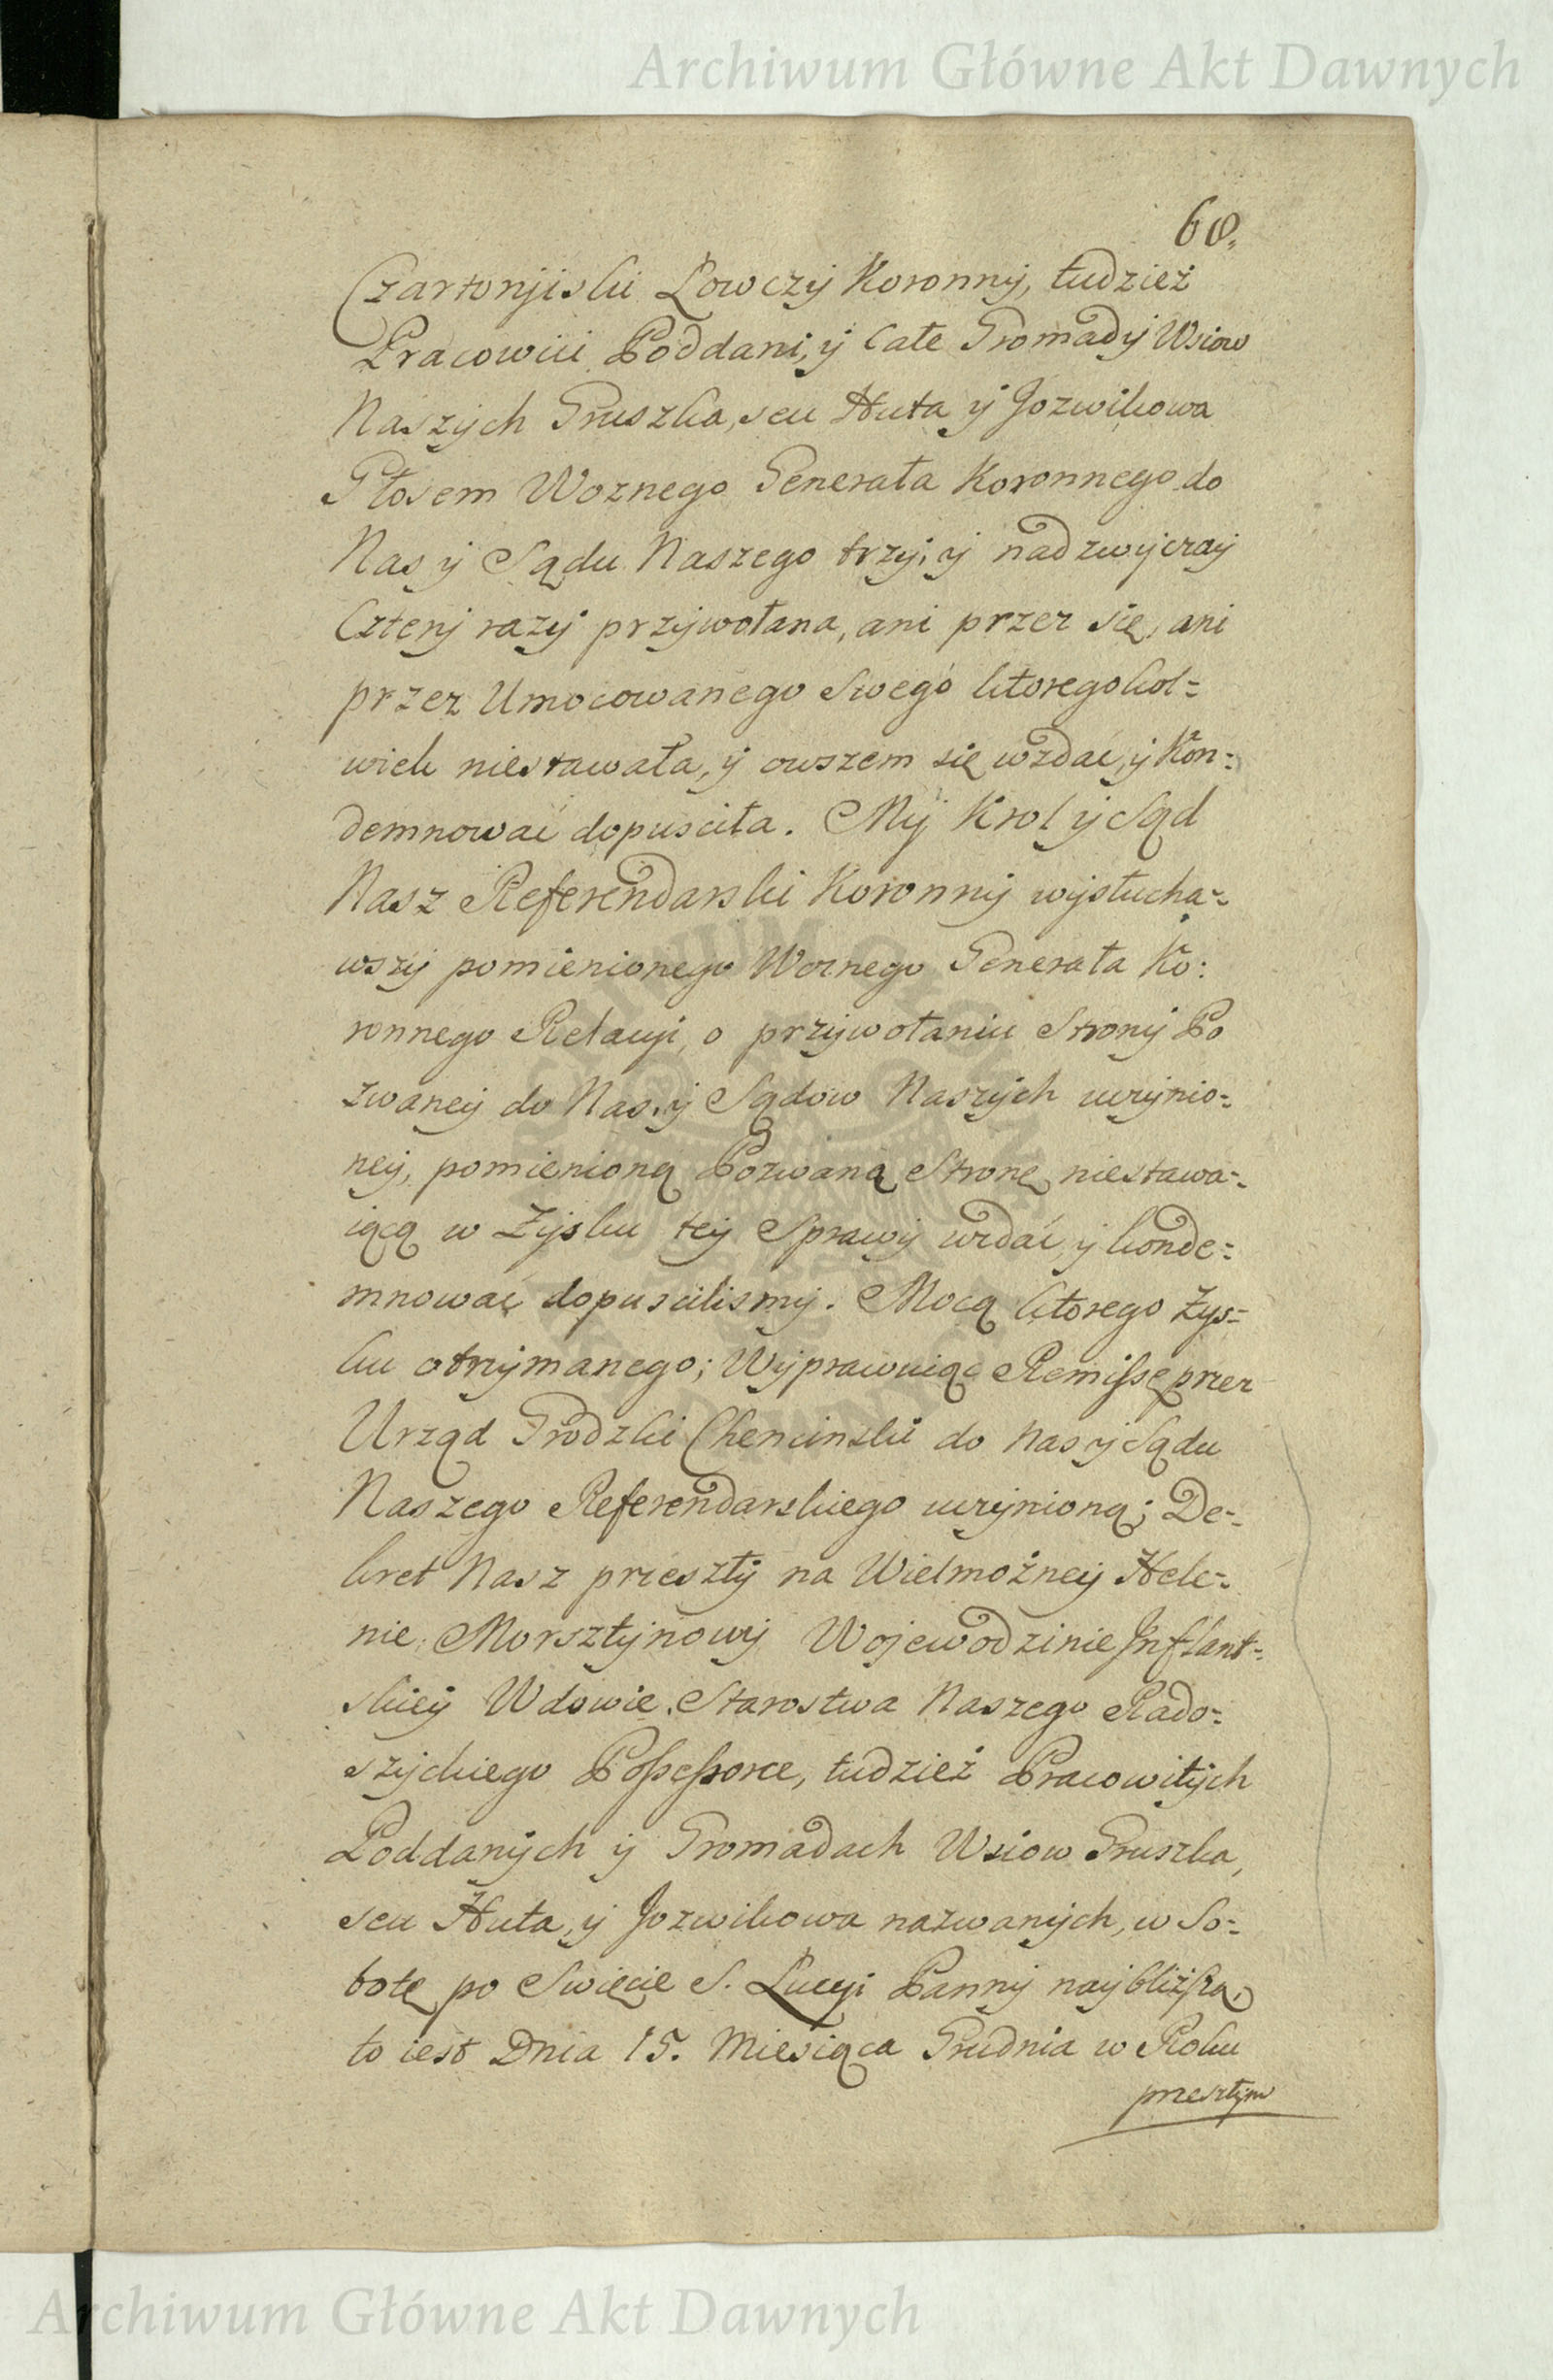 Archiwum Główne Akt Dawnych
60.
Czartoryjski Łowczÿ Koronnÿ, tudzież
Pracowici Poddani, ÿ Całe Gromadÿ Wsiow
Naszÿch Gruszka, seu Huta ÿ Jozwikowa
Głosem Woznego Generała Koronnego do
Nas ÿ Sądu Naszego trzÿ, ÿ nadzwÿczaÿ
Czterÿ razÿ przÿwołana, ani przez się, ani
przez Umocowanego Swego ktoregokol=
wiek niestawała, ÿ owszem się wzdać, ÿ Kon=
demnować dopuściła. Mÿ Krol ÿ Sąd
Nasz Referendarski Koronnÿ wÿsłucha=
wszÿ pomienionego Woznego Generała Ko:
ronnego Relacÿi, o przÿwołaniu Stronÿ Po
zwaneÿ do Nas, ÿ Sądow Naszÿch uczÿnio=
neÿ, pomienioną Pozwaną Stronę niestawa=
iącą w Zÿsku teÿ Sprawÿ wzdać, ÿ konde=
mnować dopuscilismÿ. Mocą ktorego Zys=
ku otrzÿmanego; Wÿprawuiąc Remissę przez
Urząd Grodzki Chencinski do Nas ÿ Sądu
Naszego Referendarskiego uczÿnioną; De=
kret Nasz przeszłÿ na Wielmożneÿ Hele=
nie Morsztÿnowÿ Wojewodzinie Inflant=
skieÿ Wdowie, Starostwa Naszego Rado=
szÿckiego Possessorce, tudzież Pracowitÿch
Poddanÿch ÿ Gromadach Wsiow Gruszka,
seu Huta, ÿ Jozwikowa nazwanÿch, w So=
botę po Swięcie S. Lucÿi Pannÿ naÿbliższą,
to iest Dnia 15. Miesiąca Grudnia w Roku
przeszłÿm
Archiwum Główne Akt Dawnych